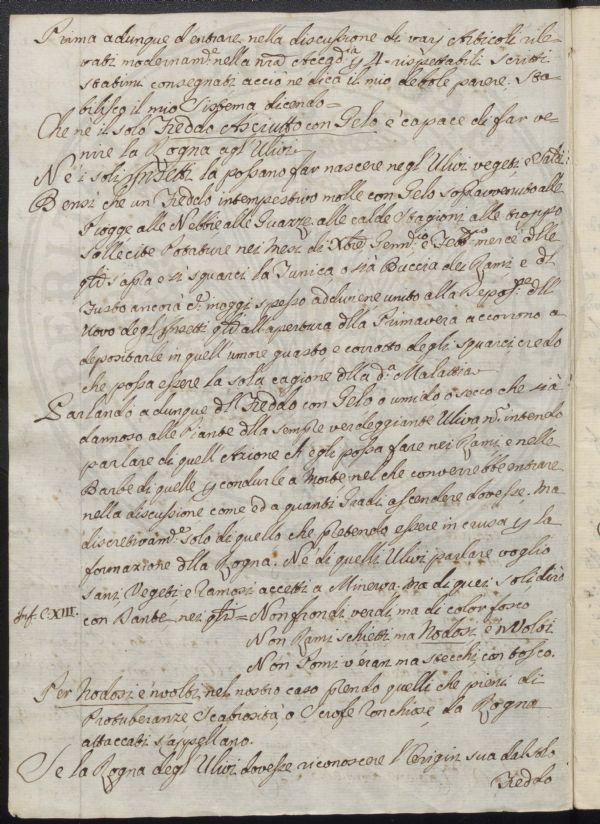 Prima adunque d'entrare nella discussione di varj Articoli rile-
vati modernam.e nella nra Accad.a p 4 rispettabili Scritti
statimi consegnati acciò ne dica il mio debole parere. Sta-
bilisco il mio Sistema dicendo=
Che nè il solo Freddo Asciutto con Gelo è capace di far ve-
nire la Rogna agl'Ulivi.
Nè i soli Insetti la possano far nascere negl'Ulivi vegeti, e
Bensì che un Freddo intempestivo molle con Gelo sopravvenuto alle
Piogge alle Nebbie alle Guazze, alle calde Stagioni, alle troppo
sollecite Potature nei Mesi di Xbre Genn.o e Febb.o mercè delle
qli s'apra e si squarci la Tunica, o sia Buccia dei Rami e di
Fusto ancora c.e maggi spesso addiviene unito alla Depos.ne dll
Uovo degl'Insetti qli all'apertura dlla Primavera accorrono a
depositarle in quell'umore guasto e corrotto degli squarci, credo
che possa essere la sola cagione dlla d.a Malattia
Parlando adunque dl Freddo con Gelo o umido o secco che sia
dannoso alle Piante dlla sempre verdeggiante Uliva n. intendo
parlare di quell'Azione ch'egli possa fare nei Rami, e nelle
Barbe di quelle p condurle a Morte, nel che converrebbe entrare
nella discussione come ed a quanti Gradi ascendere dovesse. Ma
discretivam.e solo di quello che pretendo essere in causa p la
formazione dlla Rogna. Nè di quelli Ulivi parlare voglio
sani, Vegeti, e Ramosi accetti a Minerva. ma di quei soli dirò
Inf. C. XIII.
con Dante nei qli= Non frondi verdi, ma di color fosco
Non Rami schietti, ma Nodosi, e 'nvolti
Non Pomi v'eran ma stecchi con tosco.
Per Nodosi e 'nvolti, nel nostro caso prendo quelli che pieni di
Protuberanze Scabrosità, o Scrofe Conchiose da Rogna
attaccati s'appellano.
Se la Rogna degl'Ulivi dovesse riconoscere l'Origin sua dal solo
Freddo